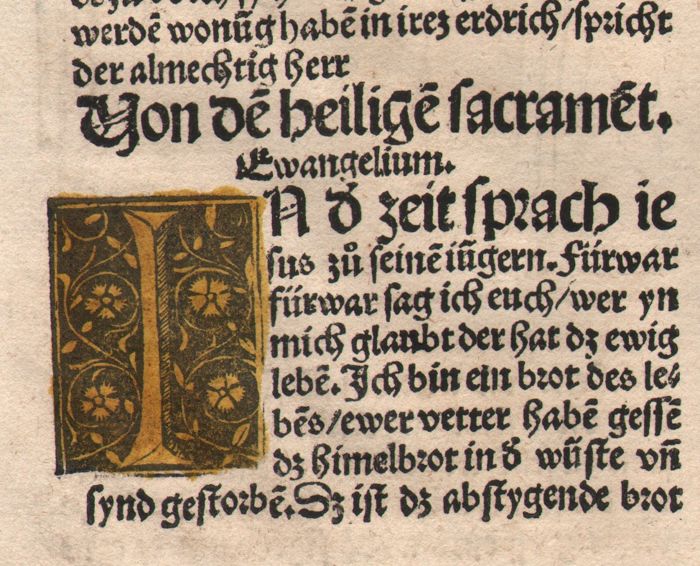 werdẽ wonũg habẽ in irez erdrich/spricht
der almechtig herr
Von dẽ heiligẽ sacramẽt.
Ewangelium.
IN d̕ zeit sprach ie
sus zů seinẽ iũgern. Fürwar
fürwar sag ich euch/wer yn
mich glaubt der hat dz ewig
lebẽ. Ich bin ein brot des le⸗
bẽs/ewer vetter habẽ gessẽ
dz himelbrot in d̕ wüste vñ
synd gestorbẽ. Dz ist dz abstygende brot